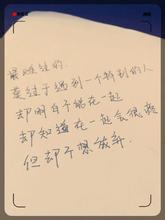 最难过的.
莫过于遇到一个特别的人
却明白不能在一起
却知道在一起会很难
但却不想放弃.